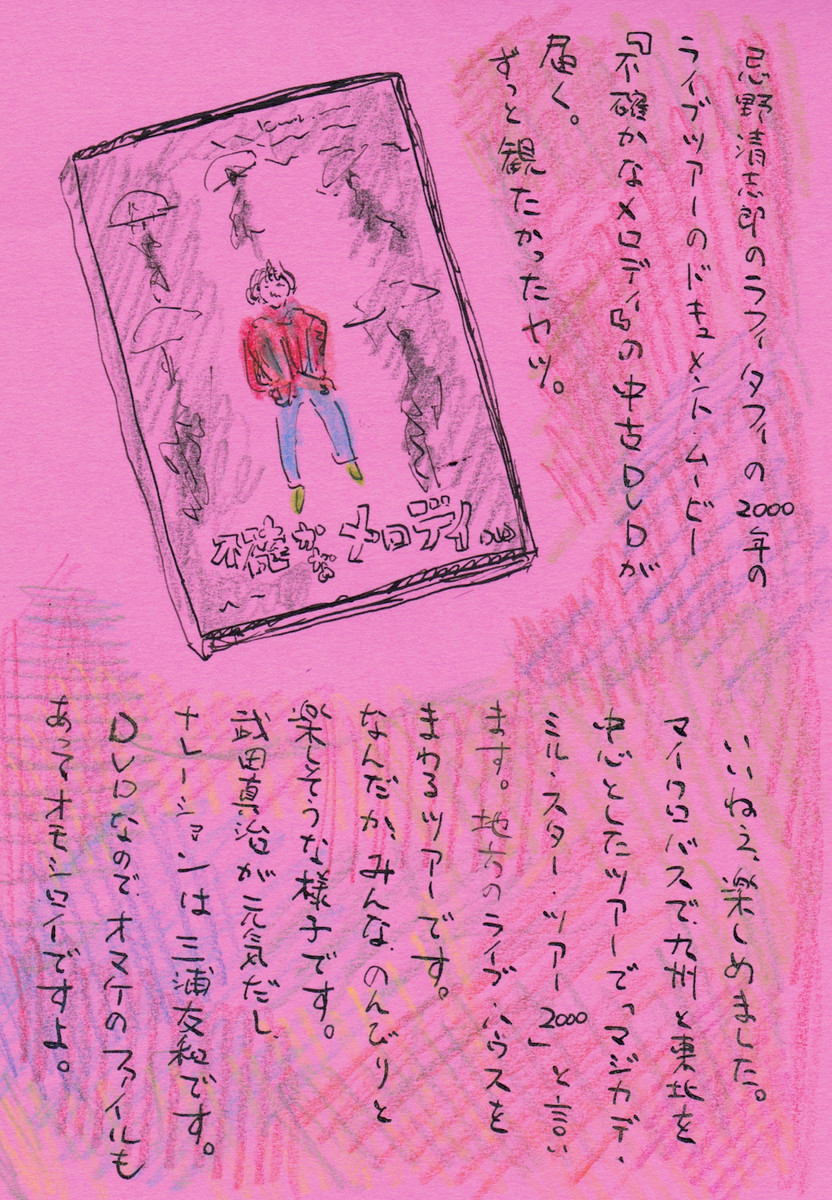 忌野清志郎のラフィータフィの2000年の
ライブツアーのドキュメント・ムービー
『不確かなメロディ』の中古DVDが
届く。
ずっと観たかったヤツ。
不確かなメロディ
DVD
いいねえ、楽しめました。
マイクロバスで、九州と東北を
中心としたツアーで「マジカデ・
ミル・スター・ツアー2000」と言い
ます。地方のライブ・ハウスを
まわるツアーです。
なんだか、みんなのんびりと
楽しそうな様子です。
武田真治が元気だし、
ナレーションは三浦友和です。
DVDなので、オマケのファイルも
あってオモシロイですよ。